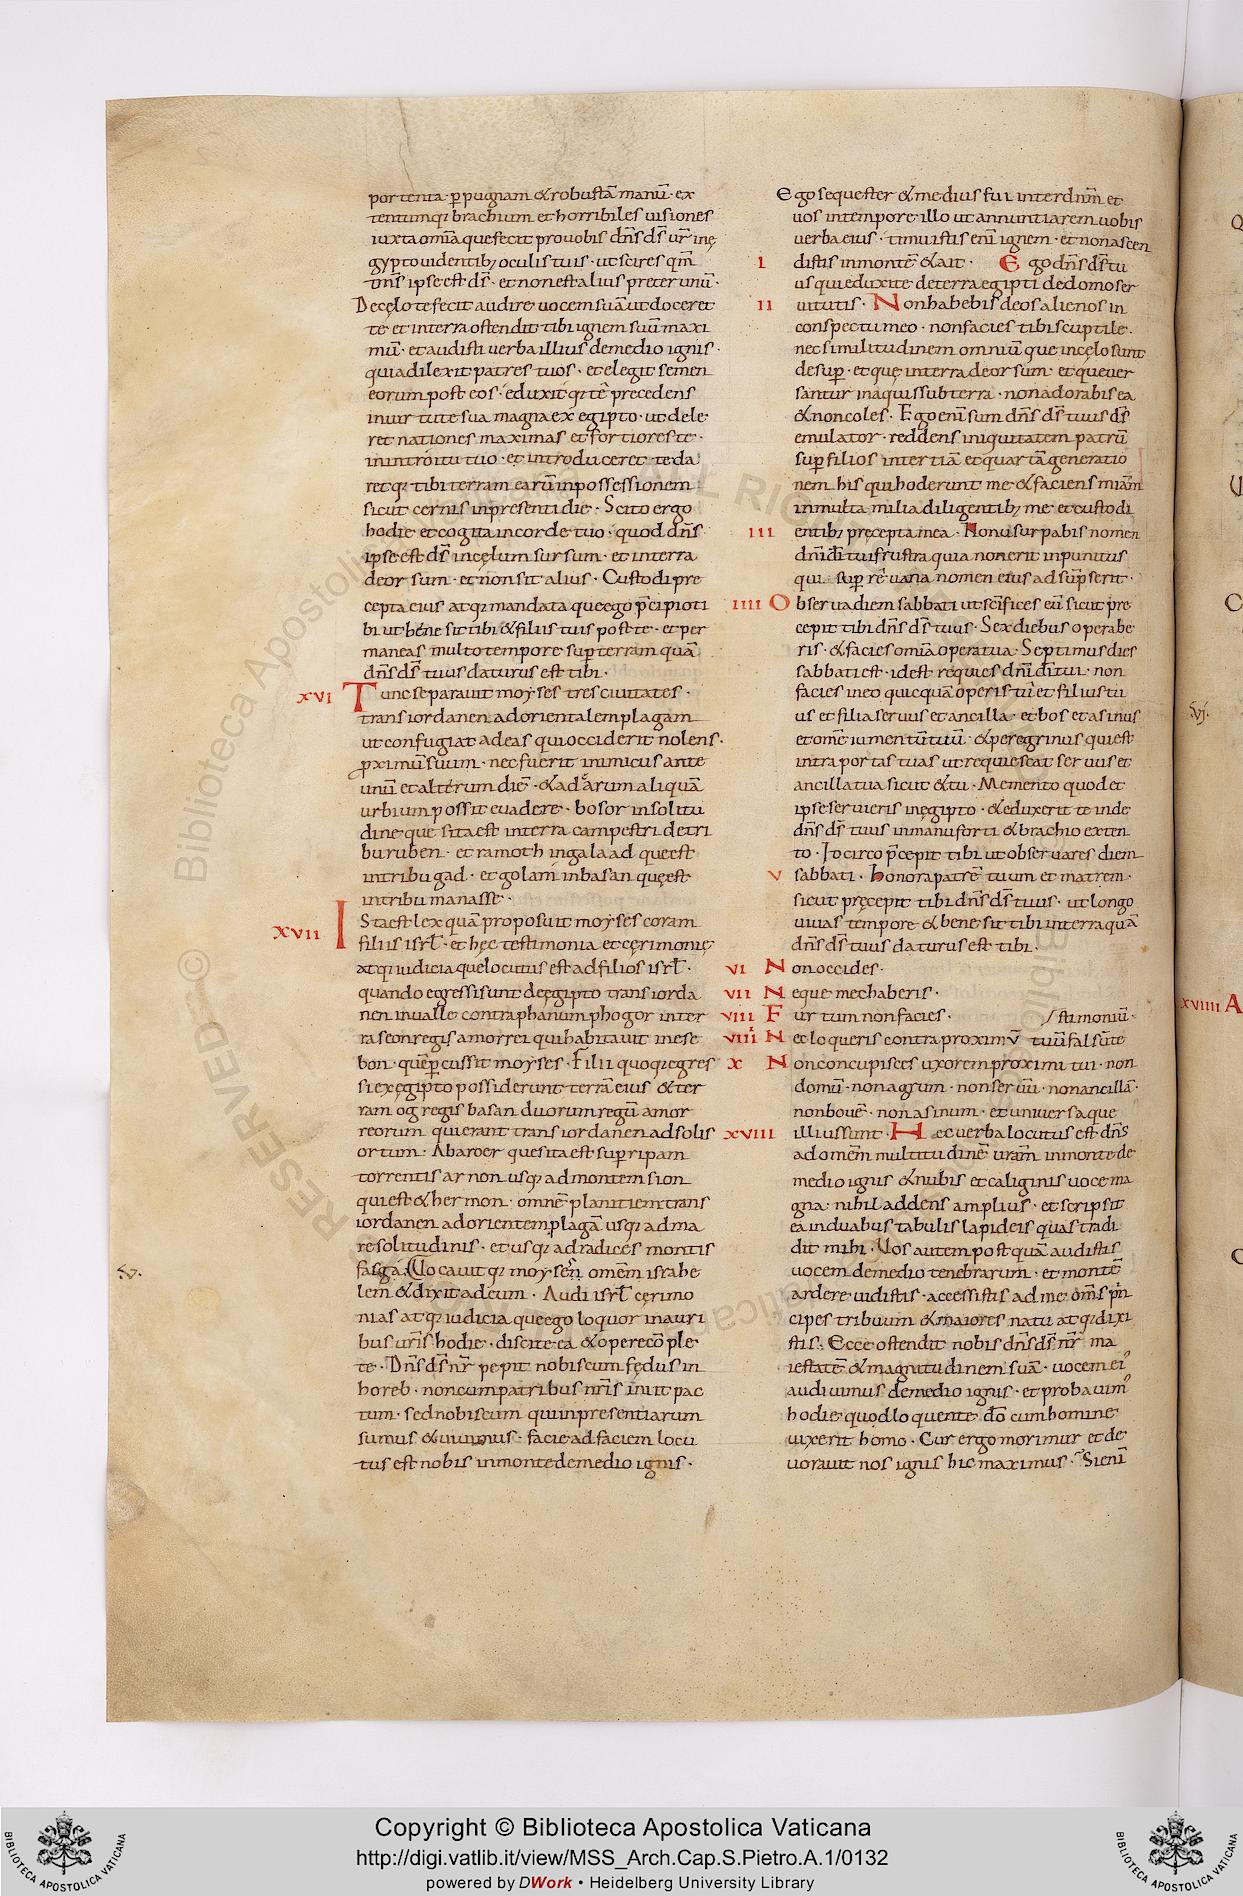 portenta · ꝑ pugnam &robustã manũ · ex
tentumq; brachium et horribiles uisiones
iuxta omĩa que fecit pro uobis dñs d̃s ur̃ in ę
gypto uidentib; oculis tuis · ut scires qm̃
dñs ipse est d̃s · et non est alius preter unũ ·
De cęlo te fecit audire uocem suã ut doceret
te · et in terra ostendit tibi ignem suũ maxi
mũ · et audisti uerba illius de medio ignis ·
quia dilexit patres tuos · et elegit semen
eorum post eos · eduxit q; te p̃cedens
in uirtute sua magna ex egipto · ut dele
ret nationes maximas et fortiores te ·
in introitu tuo · et introduceret · te da
ret q; tibi terram earũ in possessionem
sicut cernis in presenti die · Scito ergo
hodie · et cogita in corde tuo · quod dñs
ipse est d̃s in cęlum sursum · et in terra
deorsum · et non sit alius · Custodi pre
cepta eius atq; mandata que ego p̃cipio ti
bi ut bene sit tibi &filiis tuis post te · et per
maneas multo tempore super terram quã
dñs d̃s tuus daturus est tibi ·
xvi Tunc separauit moyses tres ciuitates ·
trans iordanen ad orientalem plagam
ut confugiat ad eas qui occiderit nolens ·
proximũ suum · nec fuerit inimicus ante
unũ et alterum diẽ · &ad harum aliquã
urbium possit euadere · bosor in solitu
dine que sita est in terra campestri de tri
bu ruben · et ramoth in galaad que est
in tribu gad · et golam in basan quę est
in tribu manasse ·
xvii Ista est lex quã proposuit moyses coram
filiis isr̃l · et hęc testimonia et cęrimonię
atq; iudicia que locutus est ad filios isr̃l ·
quando egressi sunt de ęgipto trans iorda
nen in ualle contra phanum phogor in ter
ra seon regis amorrei qui habitauit in ese
bon · quẽ percussit moyses · Filii quoq; egres
si ex ęgipto possiderunt terrã eius &ter
ram og regis basan duorum regũ amor
reorum qui erant trans iordanen ad solis
ortum · Ab aroer que sita est super ripam
torrentis arnon usq; ad montem sion
qui est &hermon · omnẽ planitiem trans
iordanen ad orientem plagã usq; ad ma
re solitudinis · et usq; ad radices montis
fasga · Uocauit q; moyses omẽm israhe
lem &dixit ad eum · Audi isr̃l cęrimo
nias atq; iudicia que ego loquor in auri
bus ur̃is hodie · discite ea &opere cõple
te · Dñs d̃s nr̃ pepit nobiscum fędus in
horeb · non cum patribus nr̃is iniit pac
tum · sed nobiscum qui in presentiarum
sumus &uiuimus · facie ad faciem locu
tus est nobis in monte de medio ignis ·
Ego sequester &medius fui inter dñm et
uos in tempore illo ut annuntiarem uobis
uerba eius · timuistis eni ignem · et non ascen
i distis in montẽ &ait · Ego dñs d̃s tu
us qui eduxi te de terra egipti de domo ser
ii uitutis · Non habebis deos alienos in
conspectu meo · non facies tibi scuptile ·
nec similitudinem omniũ que in cęlo sunt
desup̃ · et quę in terra deorsum · et que uer
santur in aquis sub terra · non adorabis ea
&non coles · Ego eni sum dñs d̃s tuus d̃s
emulator · reddens iniquitatem patrũ
super filios in tertiã et quartã generatio
nem his qui hoderunt me &faciens miam̃
in multa milia diligentib; me et custodi
iii entib; precepta mea · Non usurpabis nomen
dñi di tui frustra quia non erit inpunitus
qui super re uana nomen eius adsup̃serit ·
iiii Obserua diem sabbati ut sc̃ifices eũ sicut pre
cepit tibi dñs d̃s tuus · Sex diebus operabe
ris · &facies omĩa opera tua · Septimus dies
sabbati est · id est requies dñi di tui · non
facies in eo quicquã operis tu et filius tu
us et filia seruus et ancilla · et bos et asinus
et omẽ iumentũ tuũ · &peregrinus qui est
intra portas tuas ut requiescat seruus et
ancilla tua sicut &tu · Memento quod et
ipse seruieris in ęgipto · &eduxerit te inde
dñs d̃s tuus in manu forti &brachio exten
to · Idcirco p̃cepit tibi ut obseruares diem
v sabbati · honora patrẽ tuum et matrem ·
sicut pręcepit tibi dñs d̃s tuus · ut longo
uiuas tempore &bene sit tibi in terra quã
dñs d̃s tuus daturus est tibi ·
vi Non occides ·
vii Neque mechaberis ·
viii Furtum non facies · / stimoniũ ·
viiii Nec loqueris contra proximũ tuũ falsũ te
x Non concupisces uxorem proximi tui · non
domũ · non agrum · non seruũ · non ancillã ·
non bouẽ · non asinum · et uniuersa que
xviii illius sunt · Hec uerba locutus est dñs
ad omẽm multitudinẽ ur̃am in monte de
medio ignis &nubis et caliginis uoce ma
gna · nihil addens amplius · et scripsit
ea in duabus tabulis lapideis quas tradi
dit mihi · Uos autem postquã audistis
uocem de medio tenebrarum · et montẽ
ardere uidistis · accessistis ad me om̃s p̃n
cipes tribuum &maiores natu atq; dixi
stis · Ecce ostendit nobis dñs d̃s nr̃ ma
iestatẽ &magnitudinem suã · uocem ei'
audiuimus de medio ignis · et probauim'
hodie quod loquente dõ cum homine
uixerit homo · Cur ergo morimur et de
uorauit nos ignis hic maximus · Si eni
Copyright © Biblioteca Apostolica Vaticana
http://digi.vatlib.it/view/MSS_Arch.Cap.S.Pietro.A.1/0132
powered by DWork • Heidelberg University Library